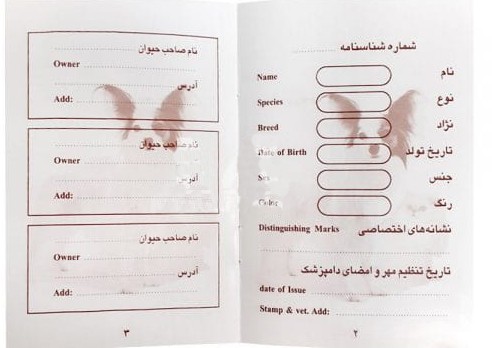 شماره شناسنامه
Name نام
Species نوع
Breed نژاد
Date of Birth تاریخ تولد
Sex جنس
Color رنگ
Distinguishing Marks نشانه‌های اختصاصی
تاریخ تنظیم مهر و امضای دامپزشک
date of Issue
Stamp & vet. Add:
۲
نام صاحب حیوان
Owner
آدرس
Add:
نام صاحب حیوان
Owner
آدرس
Add:
نام صاحب حیوان
Owner
آدرس
Add:
۳